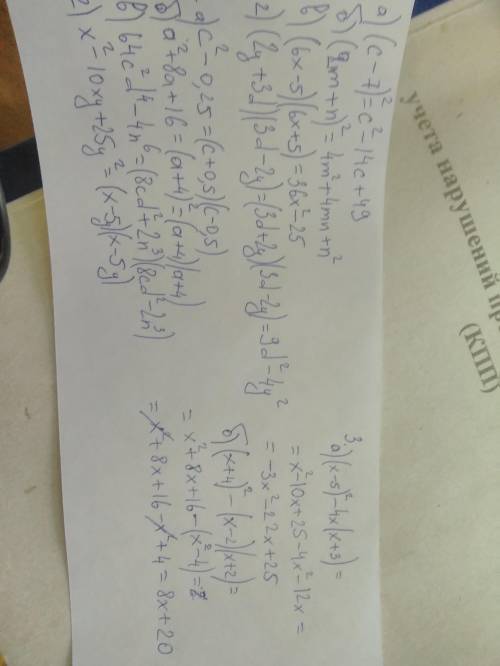 учета нарушений
(КПП)
а) (c-7)²=c²-14c+49
б) (2m+n)²=4m²+4mn+n²
в) (6x-5)(6x+5)=36x²-25
г) (2y+3d)(3d-2y)=(3d+2y)(3d-2y)=9d²-4y²
а) c²-0,25=(c+0,5)(c-0,5)
б) a²+8a+16=(a+4)²=(a+4)(a+4)
в) 64c²d⁴-4n⁶=(8cd²+2n³)(8cd²-2n³)
г) x²-10xy+25y²=(x-5y)(x-5y)
3
а) (x-5)²-4x(x+3)=
=x²-10x+25-4x²-12x=
=-3x²-22x+25
б) (x+4)²-(x-2)(x+2)=
=x²+8x+16-(x²-4)=
=x²+8x+16-x²+4=8x+20